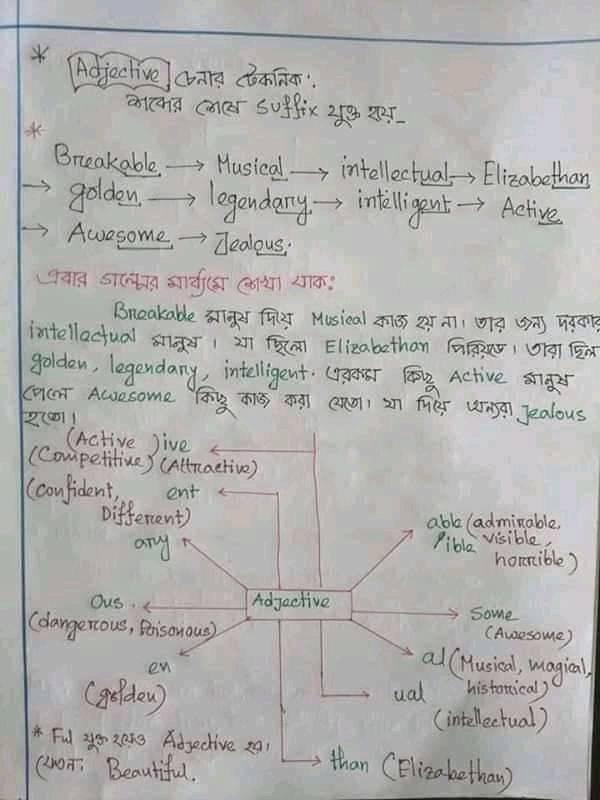 * Adjective চেনার টেকনিক:
শব্দের শেষে Suffix যুক্ত হয়_
*
Breakable → Musical → intellectual → Elizabethan
→ golden → legendary → intelligent → Active
→ Awesome → Jealous.
এবার গল্পের মাধ্যমে শেখা যাক:
Breakable মানুষ দিয়ে Musical কাজ হয় না। তার জন্য দরকার
intellectual মানুষ। যা ছিলো Elizabethan পিরিয়ডে। তারা ছিল
golden, legendary, intelligent. এরকম কিছু Active মানুষ
পেলে Awesome কিছু কাজ করা যেতো। যা দিয়ে অন্যরা Jealous
হতো।
(Active) ive
(Competitive) (Attractive)
(confident, ent
Different)
ary
able (admirable,
ible visible,
horrible)
Adjective
Ous.
(dangerous, Poisonous)
Some
(Awesome)
en
(golden)
al (Musical, magical,
historical)
ual
(intellectual)
* Ful যুক্ত হয়েও Adjective হয়।
যেমন: Beautiful.
than (Elizabethan)